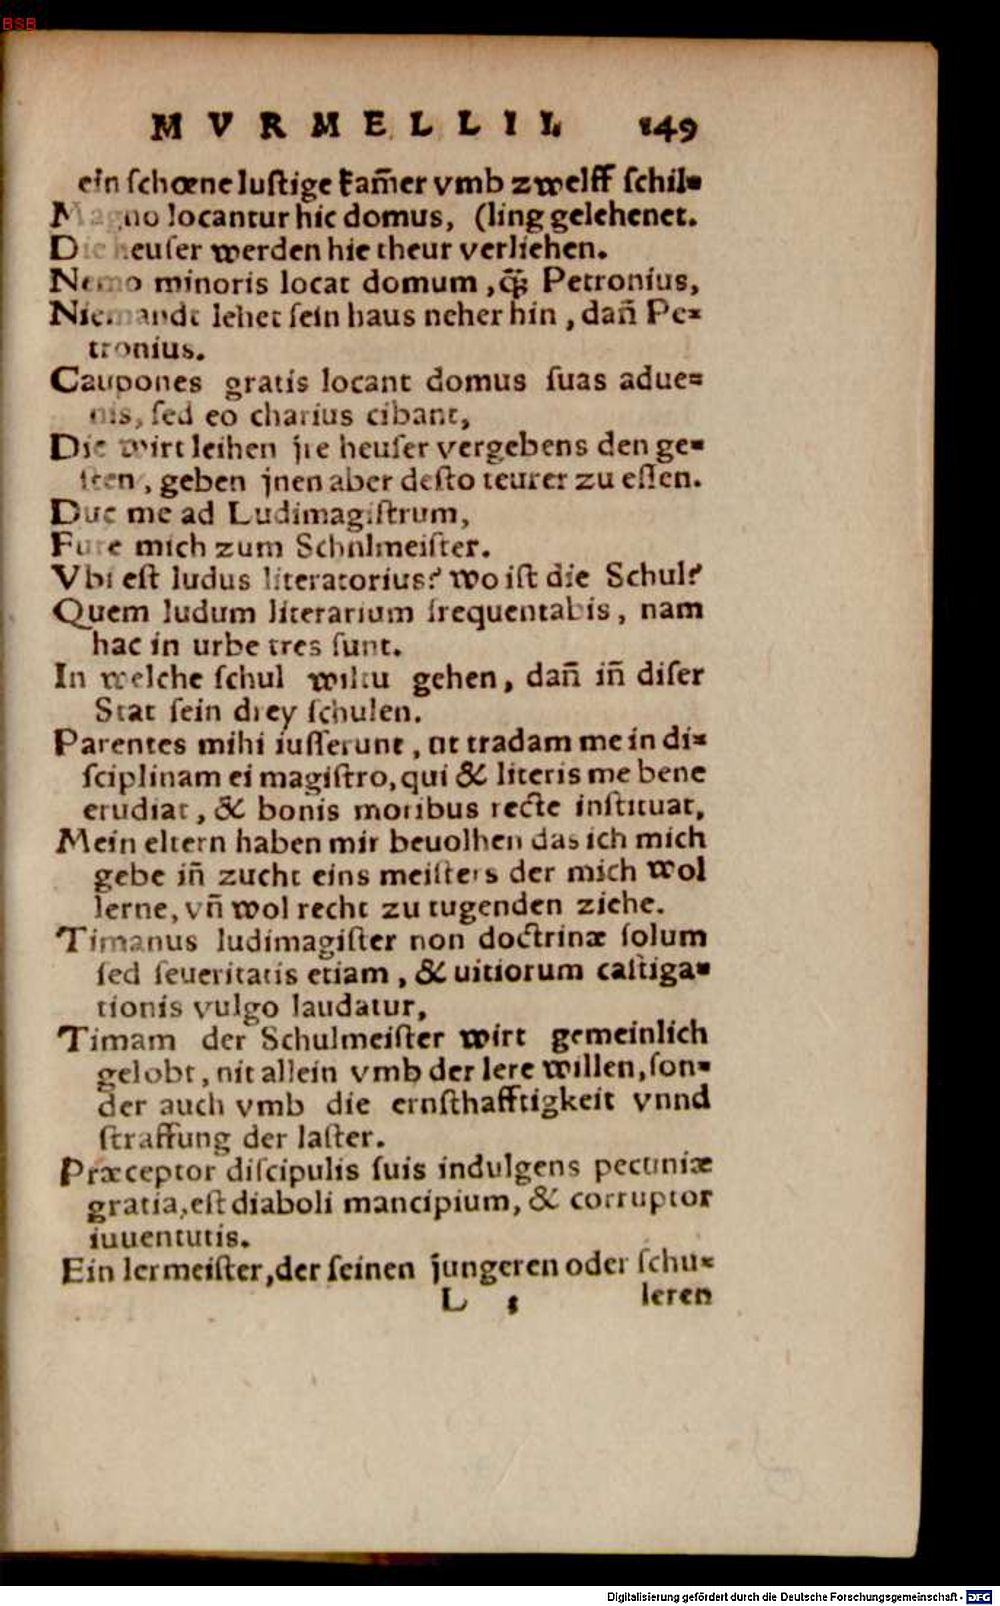 BSB
MVRMELLII. 149
ein schœne lustige kam̃er vmb zwelff schil⸗
Magno locantur hic domus, (ling gelehenet.
Die heuser werden hie theur verliehen.
Nemo minoris locat domum, q̃ꝫ Petronius,
Niemandt lehet sein haus neher hin, dañ Pe⸗
tronius.
Caupones gratis locant domus suas adue⸗
nis, sed eo charius cibant,
Die wirt leihen jre heuser vergebens den ge⸗
sten, geben jnen aber desto teurer zu essen.
Duc me ad Ludimagistrum,
Fure mich zum Schulmeister.
Vbi est ludus literatorius? wo ist die Schul?
Quem ludum literarium frequentabis, nam
hac in urbe tres sunt.
In welche schul wiltu gehen, dañ iñ diser
Stat sein drey schulen.
Parentes mihi iusserunt, ut tradam me in di⸗
sciplinam ei magistro, qui & literis me bene
erudiat, & bonis moribus recte instituat,
Mein eltern haben mir beuolhen das ich mich
gebe iñ zucht eins meisters der mich wol
lerne, vñ wol recht zu tugenden ziehe.
Timanus ludimagister non doctrinæ solum
sed seueritatis etiam, & uitiorum castiga⸗
tionis vulgo laudatur,
Timam der Schulmeister wirt gemeinlich
gelobt, nit allein vmb der lere willen, son⸗
der auch vmb die ernsthafftigkeit vnnd
straffung der laster.
Præceptor discipulis suis indulgens pecuniæ
gratia, est diaboli mancipium, & corruptor
iuuentutis.
Ein lermeister, der seinen jungeren oder schu⸗
L 5 leren
Digitalisierung gefördert durch die Deutsche Forschungsgemeinschaft - DFG